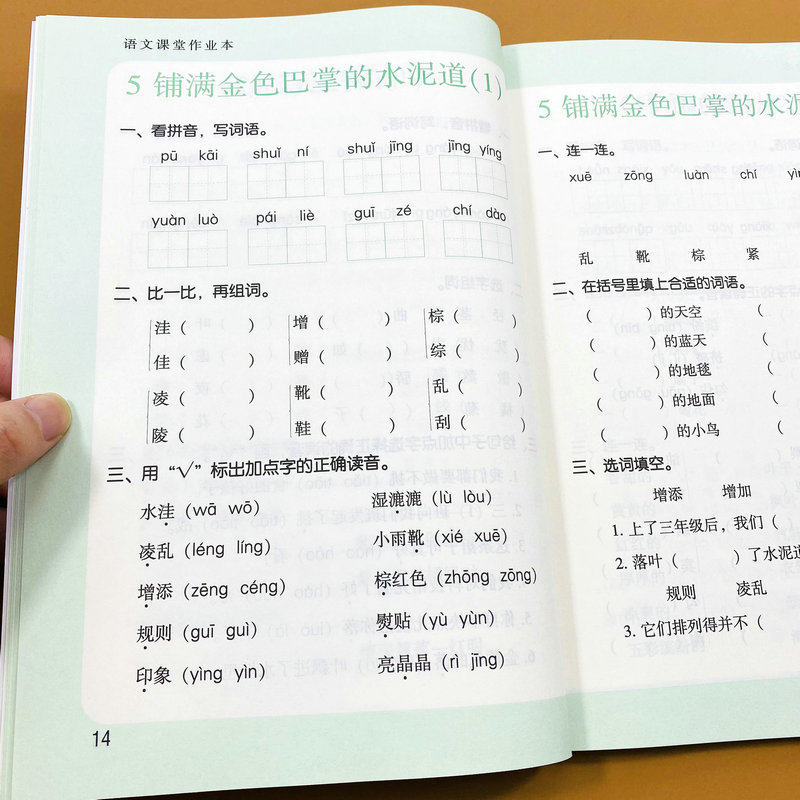 语文课堂作业本
5 铺满金色巴掌的水泥道(1)
一、看拼音，写词语。
pū kāi shuǐ ní shuǐ jīng jīng yíng
yuàn luò pái liè guī zé chí dào
二、比一比，再组词。
洼( ) 增( ) 棕( )
佳( ) 赠( ) 综( )
凌( ) 靴( ) 乱( )
陵( ) 鞋( ) 刮( )
三、用“√”标出加点字的正确读音。
水洼(wā wō) 湿漉漉(lù lòu)
凌乱(léng líng) 小雨靴(xié xuē)
增添(zēng céng) 棕红色(zhōng zōng)
规则(guī guì) 熨贴(yù yùn)
印象(yìng yìn) 亮晶晶(rì jīng)
14
5 铺满金色巴掌的水泥
一、连一连。
xuē zōng luàn chí
乱 靴 棕 紧
二、在括号里填上合适的词语。
( )的天空 (
( )的蓝天 (
( )的地毯 (
( )的地面 (
( )的小鸟 (
三、选词填空。
增添 增加
1. 上了三年级后，我们(
2. 落叶( )了水泥道
规则 凌乱
3. 它们排列得并不(